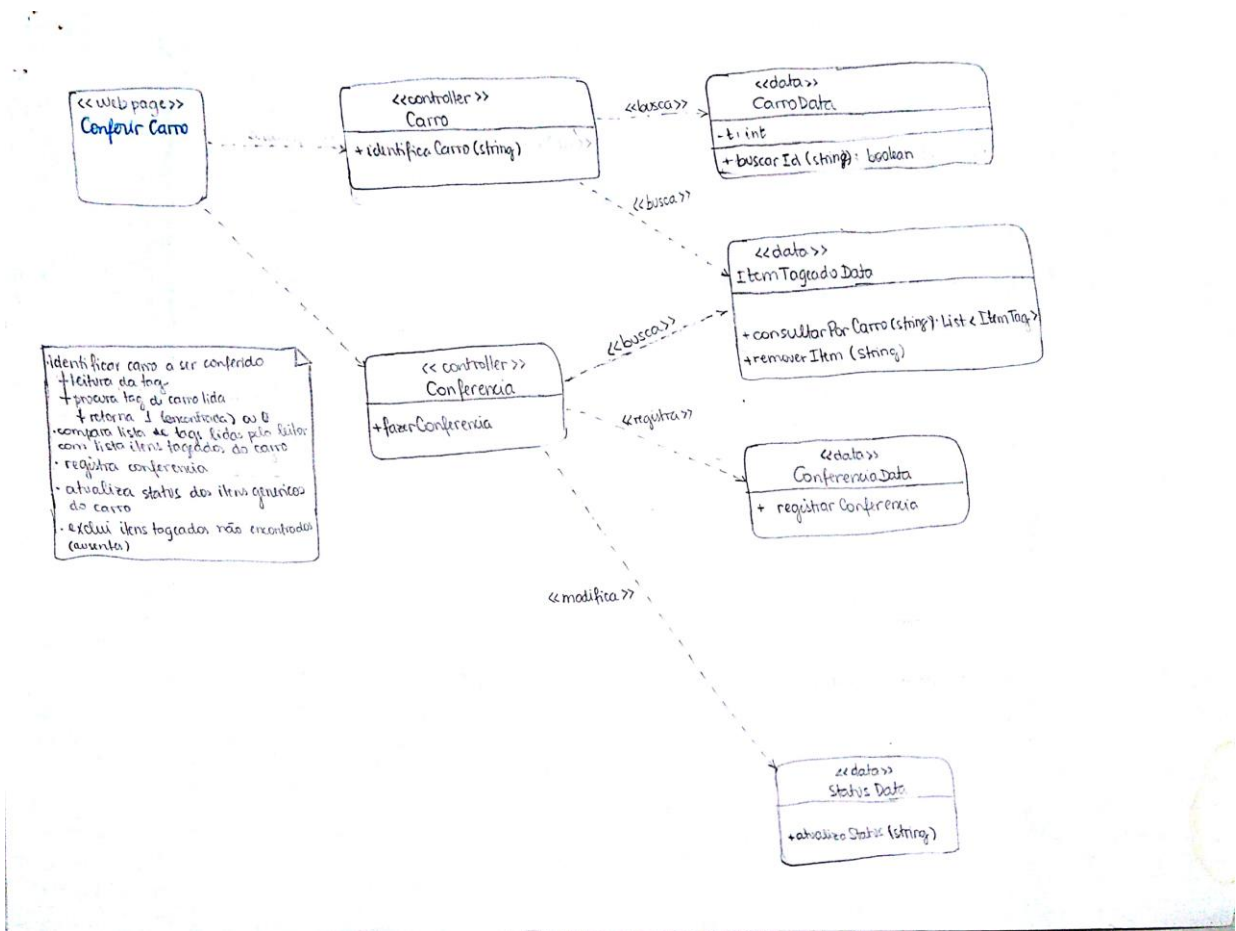 <<web page>>
Conferir Carro
<<controller>>
Carro
+identifica Carro (string)
<<busca>>
<<data>>
CarroData
- t: int
+ buscar Id (string): boolean
<<busca>>
<<data>>
ItemTageado Data
+consultarPor Carro (string): List < ItemTag>
+remover Item (string)
<<busca>>
<<controller>>
Conferencia
+fazerConferencia
<<registra>>
<<data>>
Conferencia Data
+ registrar Conferencia
<<modifica>>
<<data>>
Status Data
+atualiza Status (string)
·identificar carro a ser conferido
+leitura da tag
+procura tag de carro lida
+ retorna 1 (encontrada) ou 0
·compara lista de tags lidas pelo leitor
com lista itens tageados do carro
· registra conferencia
· atualiza status dos itens genericos
do carro
· exclui itens tageados não encontrados
(ausentes)